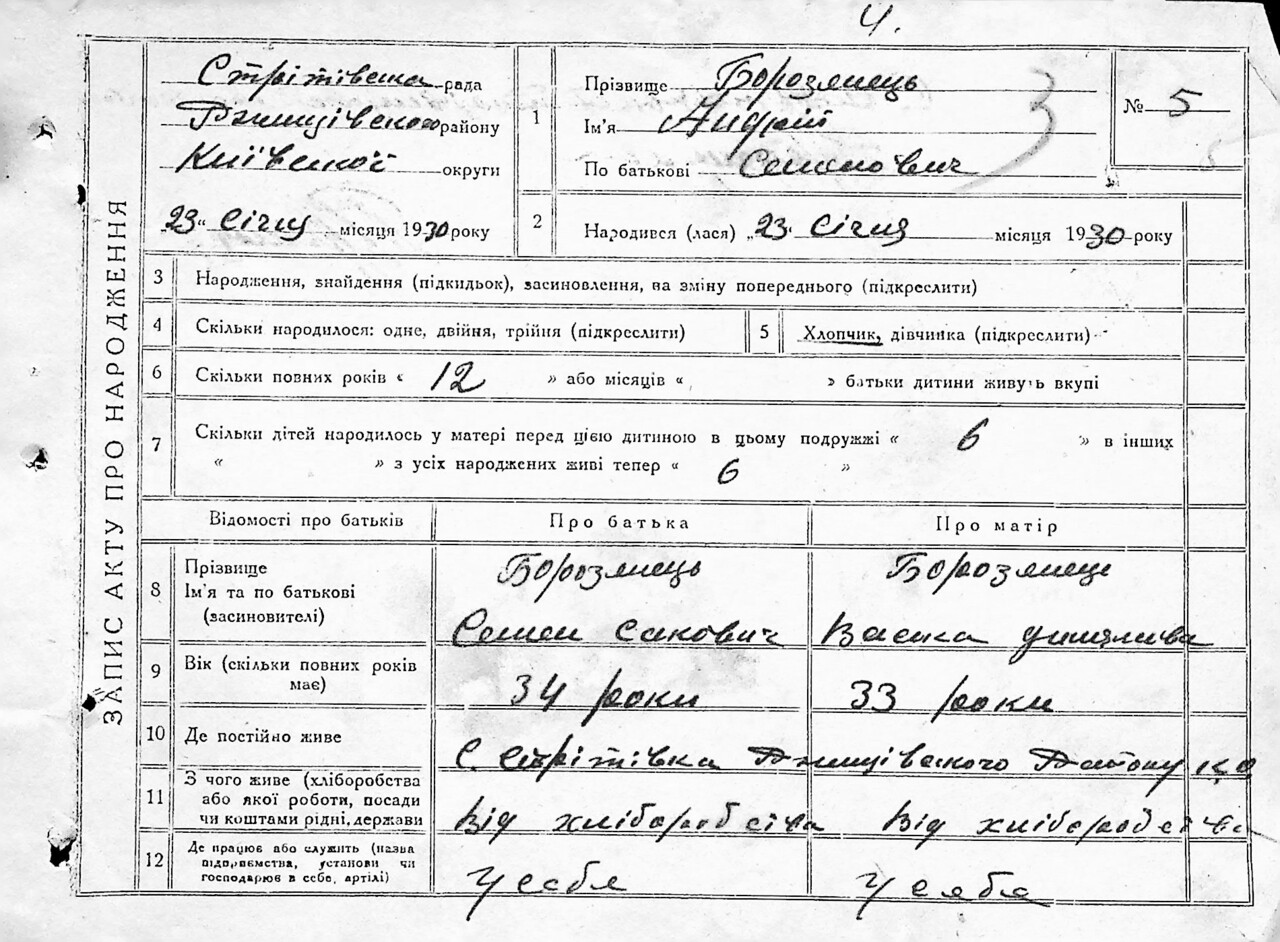 4.
Стрітівська рада
Ржищівського району
Київської округи
23 " Січня місяця 1930 року
1
Прізвище Бороземець
Ім'я Андрій
По батькові Семенович
3
№ 5
2
Народився (лася) " 23 " Січня місяця 1930 року
ЗАПИС АКТУ ПРО НАРОДЖЕННЯ
3 Народження, знайдення (підкидьок), засиновлення, на зміну попереднього (підкреслити)
4 Скільки народилося: одне, двійня, трійня (підкреслити)
5 Хлопчик, дівчинка (підкреслити)
6 Скільки повних років « 12 » або місяців « » батьки дитини живуть вкупі
7 Скільки дітей народилось у матері перед цією дитиною в цьому подружжі « 6 » в інших
« » з усіх народжених живі тепер « 6 »
Відомості про батьків Про батька Про матір
8 Прізвище
Ім'я та по батькові
(засиновителі)
Бороземець
Семен Сакович
Бороземець
9 Вік (скільки повних років
має)
34 роки 33 роки
10 Де постійно живе
с. Стрітівка Ржищівського Району К.О
11 З чого живе (хліборобства
або якої роботи, посади
чи коштами рідні, держави
Від хліборобства Від хліборобства
12 Де працює або служить (назва
підприємства, установи чи
господарює в себе, артілі)
У себя У себя